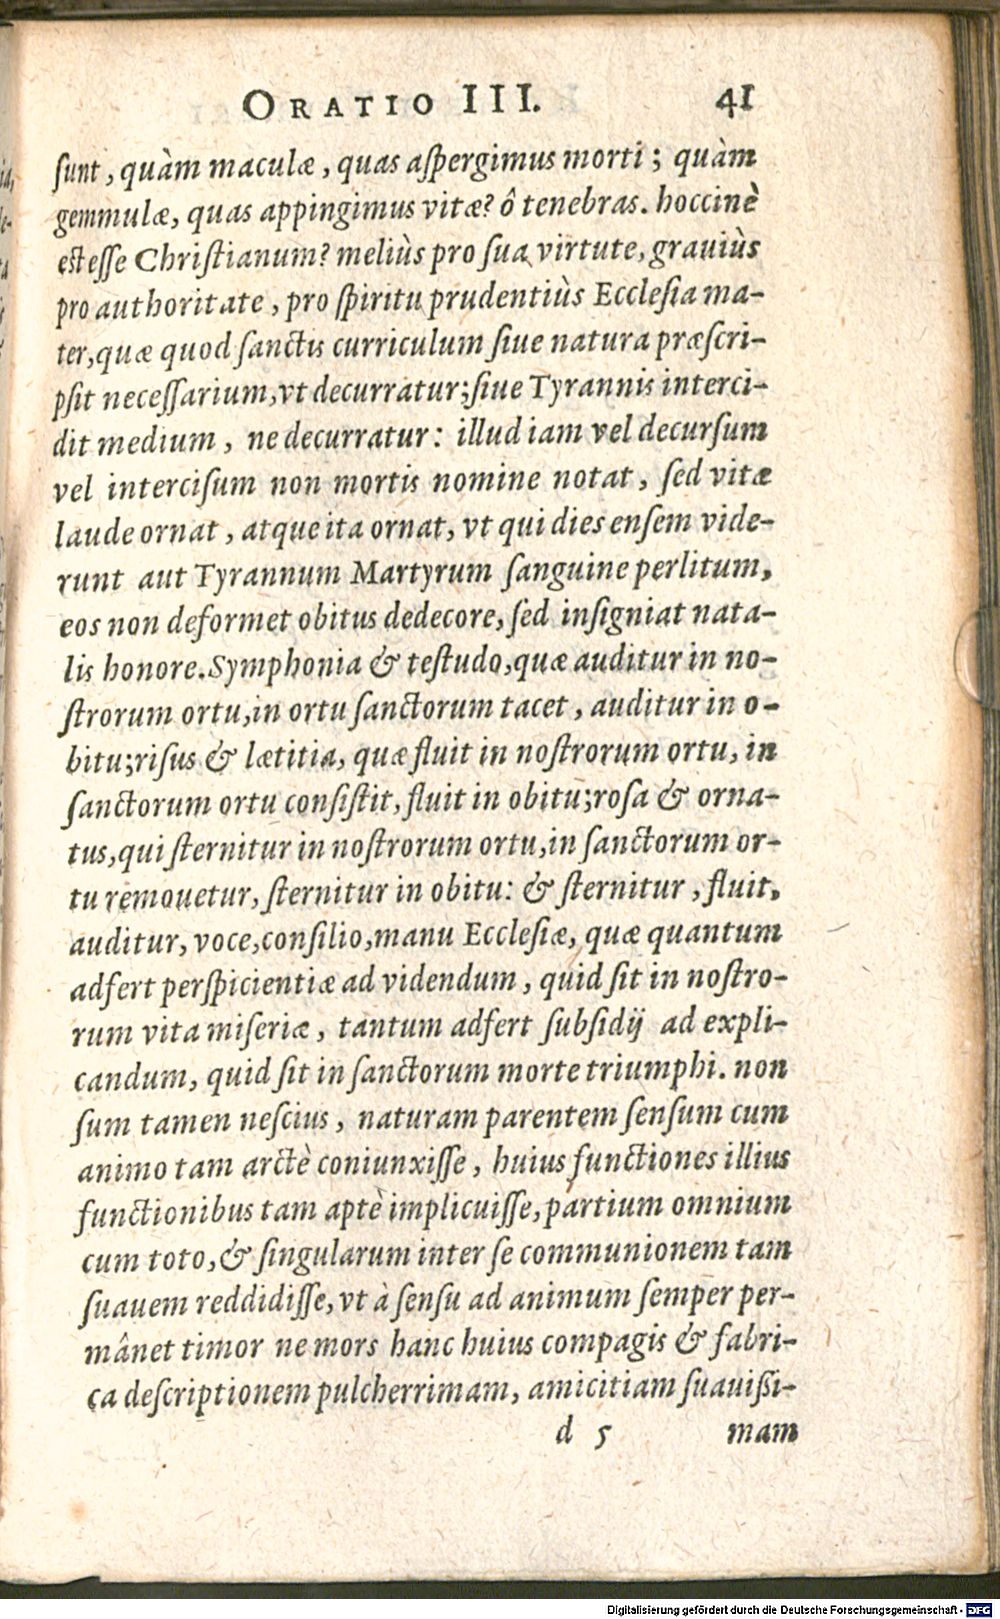 ORATIO III. 41
sunt, quàm maculæ, quas aspergimus morti; quàm
gemmulæ, quas appingimus vitæ? ô tenebras. hoccinè
est esse Christianum? meliùs pro sua virtute, grauiùs
pro authoritate, pro spiritu prudentiùs Ecclesia ma-
ter, quæ quod sanctis curriculum siue natura præscri-
psit necessarium, vt decurratur; siue Tyrannis interci-
dit medium, ne decurratur: illud iam vel decursum
vel intercisum non mortis nomine notat, sed vitæ
laude ornat, atque ita ornat, vt qui dies ensem vide-
runt aut Tyrannum Martyrum sanguine perlitum,
eos non deformet obitus dedecore, sed insigniat nata-
lis honore. Symphonia & testudo, quæ auditur in no-
strorum ortu, in ortu sanctorum tacet, auditur in o-
bitu; risus & lætitia, quæ fluit in nostrorum ortu, in
sanctorum ortu consistit, fluit in obitu; rosa & orna-
tus, qui sternitur in nostrorum ortu, in sanctorum or-
tu remouetur, sternitur in obitu: & sternitur, fluit,
auditur, voce, consilio, manu Ecclesiæ, quæ quantum
adfert perspicientiæ ad videndum, quid sit in nostro-
rum vita miseriæ, tantum adfert subsidij ad expli-
candum, quid sit in sanctorum morte triumphi. non
sum tamen nescius, naturam parentem sensum cum
animo tam arctè coniunxisse, huius functiones illius
functionibus tam aptè implicuisse, partium omnium
cum toto, & singularum inter se communionem tam
suauem reddidisse, vt à sensu ad animum semper per-
mânet timor ne mors hanc huius compagis & fabri-
ca descriptionem pulcherrimam, amicitiam suauißi-
d 5 mam
Digitalisierung gefördert durch die Deutsche Forschungsgemeinschaft - DFG